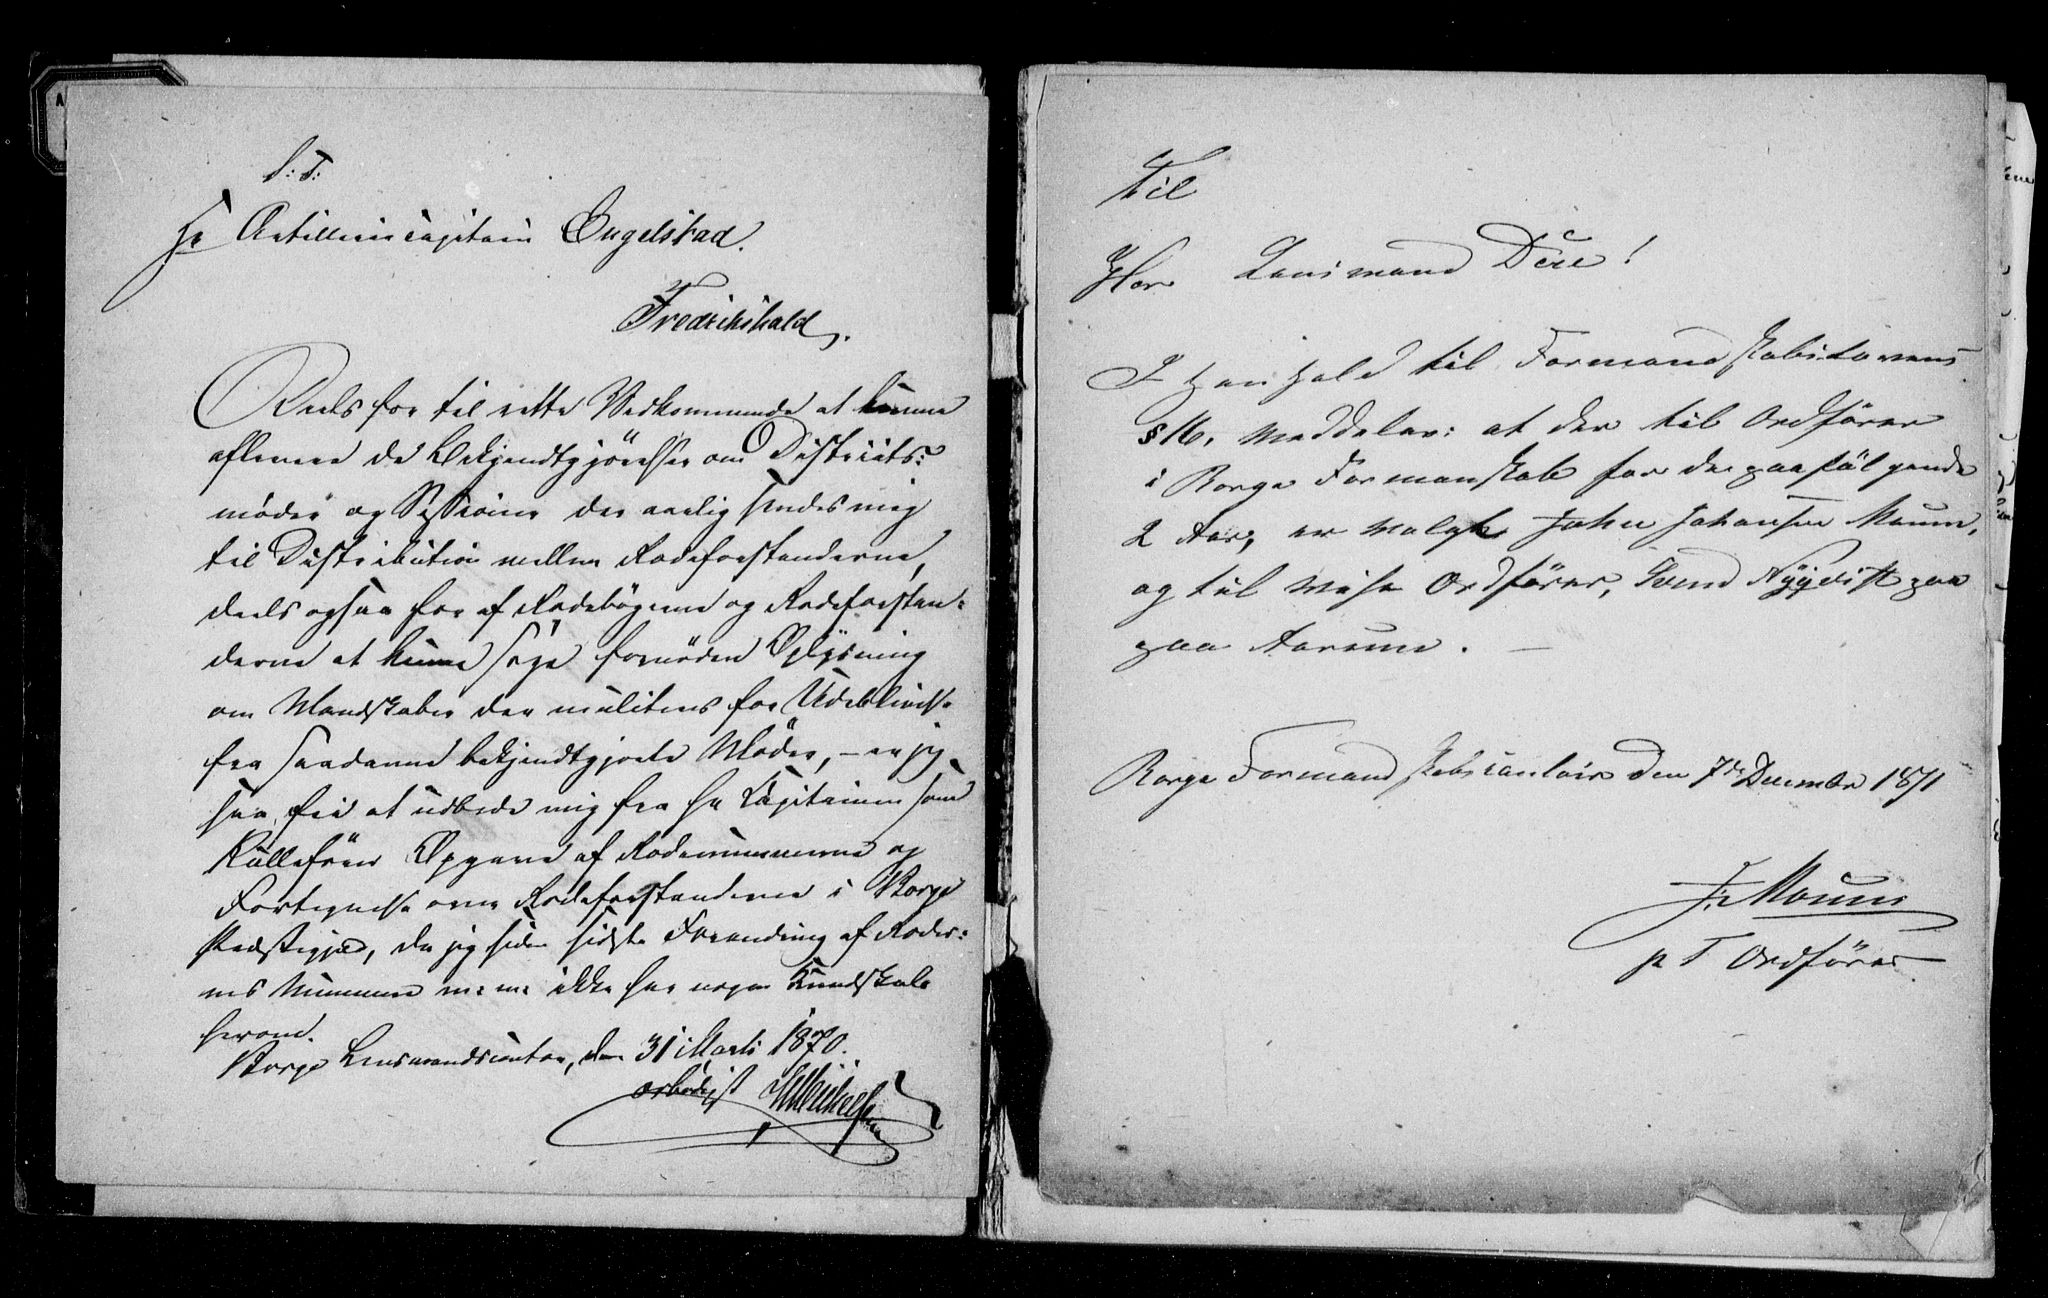 S: T:
Hr Artillericapitain Engelstad.
Fredrikshald.
Deels for til rette Vedkommende at kunne
aflevere de Bekjendtgjörelser om Districts:
møder og Sessioner der aarlig sendes mig
til Distribution mellem Rodeforstanderne,
deels ogsaa for af Rodebögerne og Rodeforstan:
derne at kunne söge fornöden Oplysning
om Mandskaber der mulkteres for Udeblivelse
fra saadanne bekjendtgjorte Möder, – er jeg
saa fri at udbede mig fra Hr Capitainen som
Rulleförer Opgave af Rodenummerne og
Fortegnelse over Rodeforstanderne i Borge
Præstegjæld, da jeg siden sidste Forandring af Roder:
nes Nummere m: m: ikke har nogen Kundskab
herom.
Borge Lensmandscontor, den 31 Marts 1870.
ærbödigst
Til
Herr Lensmand Dëre!
I Henhold til Formandskabslovens
§ 16, meddeles: at der til Ordförer
i Borge Formanskab for de paafölgende
2 Aar, er valgt John Johansen Moum,
og til vise Ordförer, Svend Nyqvist paa
paa Aarum. —
Borge Formandskabscontoir den 7de December 1871
J: Moum
p T Ordförer